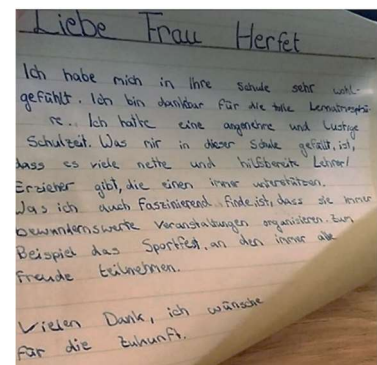 Liebe Frau Herfet
Ich habe mich in Ihre Schule sehr wohl-
gefühlt. Ich bin dankbar für die tolle Lernatmosphä-
re.. Ich hatte eine angenehme und lustige
Schulzeit. Was mir in dieser Schule gefällt, ist,
dass es viele nette und hilfsbereite Lehrer/
Erzieher gibt, die einen immer unterstützen.
Was ich auch faszinierend finde, ist, dass sie immer
bewundernswerte Veranstaltungen organisieren. Zum
Beispiel das Sportfest, an den immer alle
Freude teilnehmen.
Vielen Dank, ich wünsche
für die Zukunft.